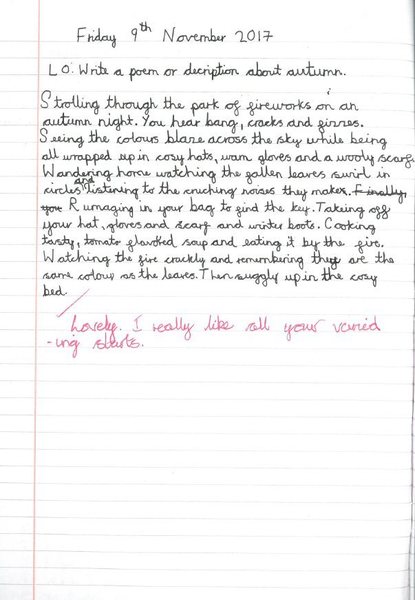 Friday 9th November 2017
L O: Write a poem or decription about autumn.
Strolling through the park of fireworks on an
autumn night. You hear bang, cracks and fizzes.
Seeing the colours blaze across the sky while being
all wrapped up in cosy hats, warm gloves and a wooly scarf.
Wandering home watching the fallen leaves swirl in
circles and listening to the cruching noises they makes. Finally,
you Rumaging in your bag to find the key. Takeing off
your hat, gloves and scarf and winter boots. Cooking
tasty, tomato flavored soup and eating it by the fire.
Watching the fire crackly and remumbering they are the
same colour as the leaves. Then suggly up in the cosy
bed.
Lovely. I really like all your varied
-ing starts.